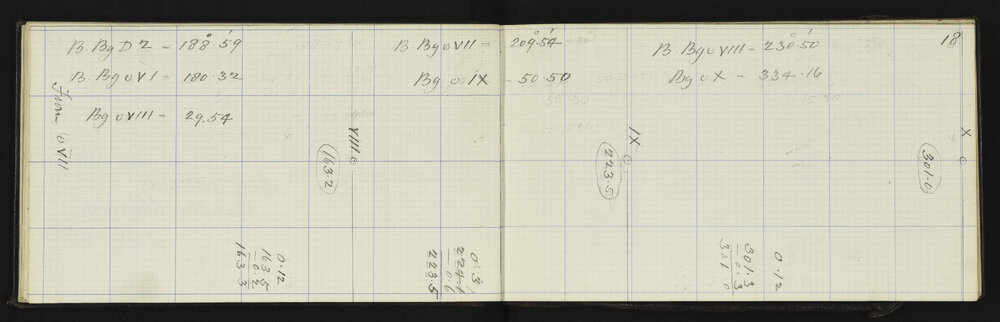 B. Bg D 2 = 188°.59'
B. Bg o VI = 180.32
Bg o VIII = 29.54
From o VII
VIII.o
163.2
0.12
163.5
0.2
163.3
B. Bg o VII = 209°.54'
Bg o IX = 50.50
0.31
224.1
0.6
223.5
18
B. Bg o VIII = 230°.50'
Bg o X = 334.16
IX o
223.5
X o
301.0
0.12
301.3
0.3
301.0